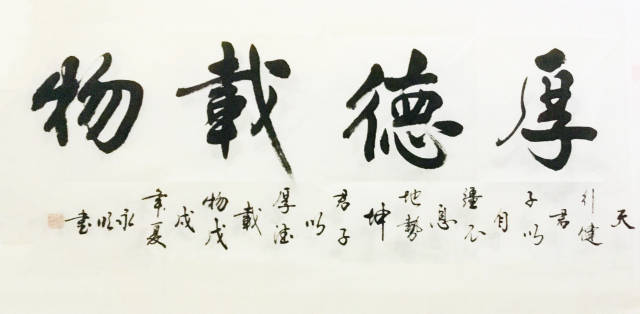 厚德載物
天行健君子以自彊不息地勢坤君子以厚德載物戊戌年夏永旺書